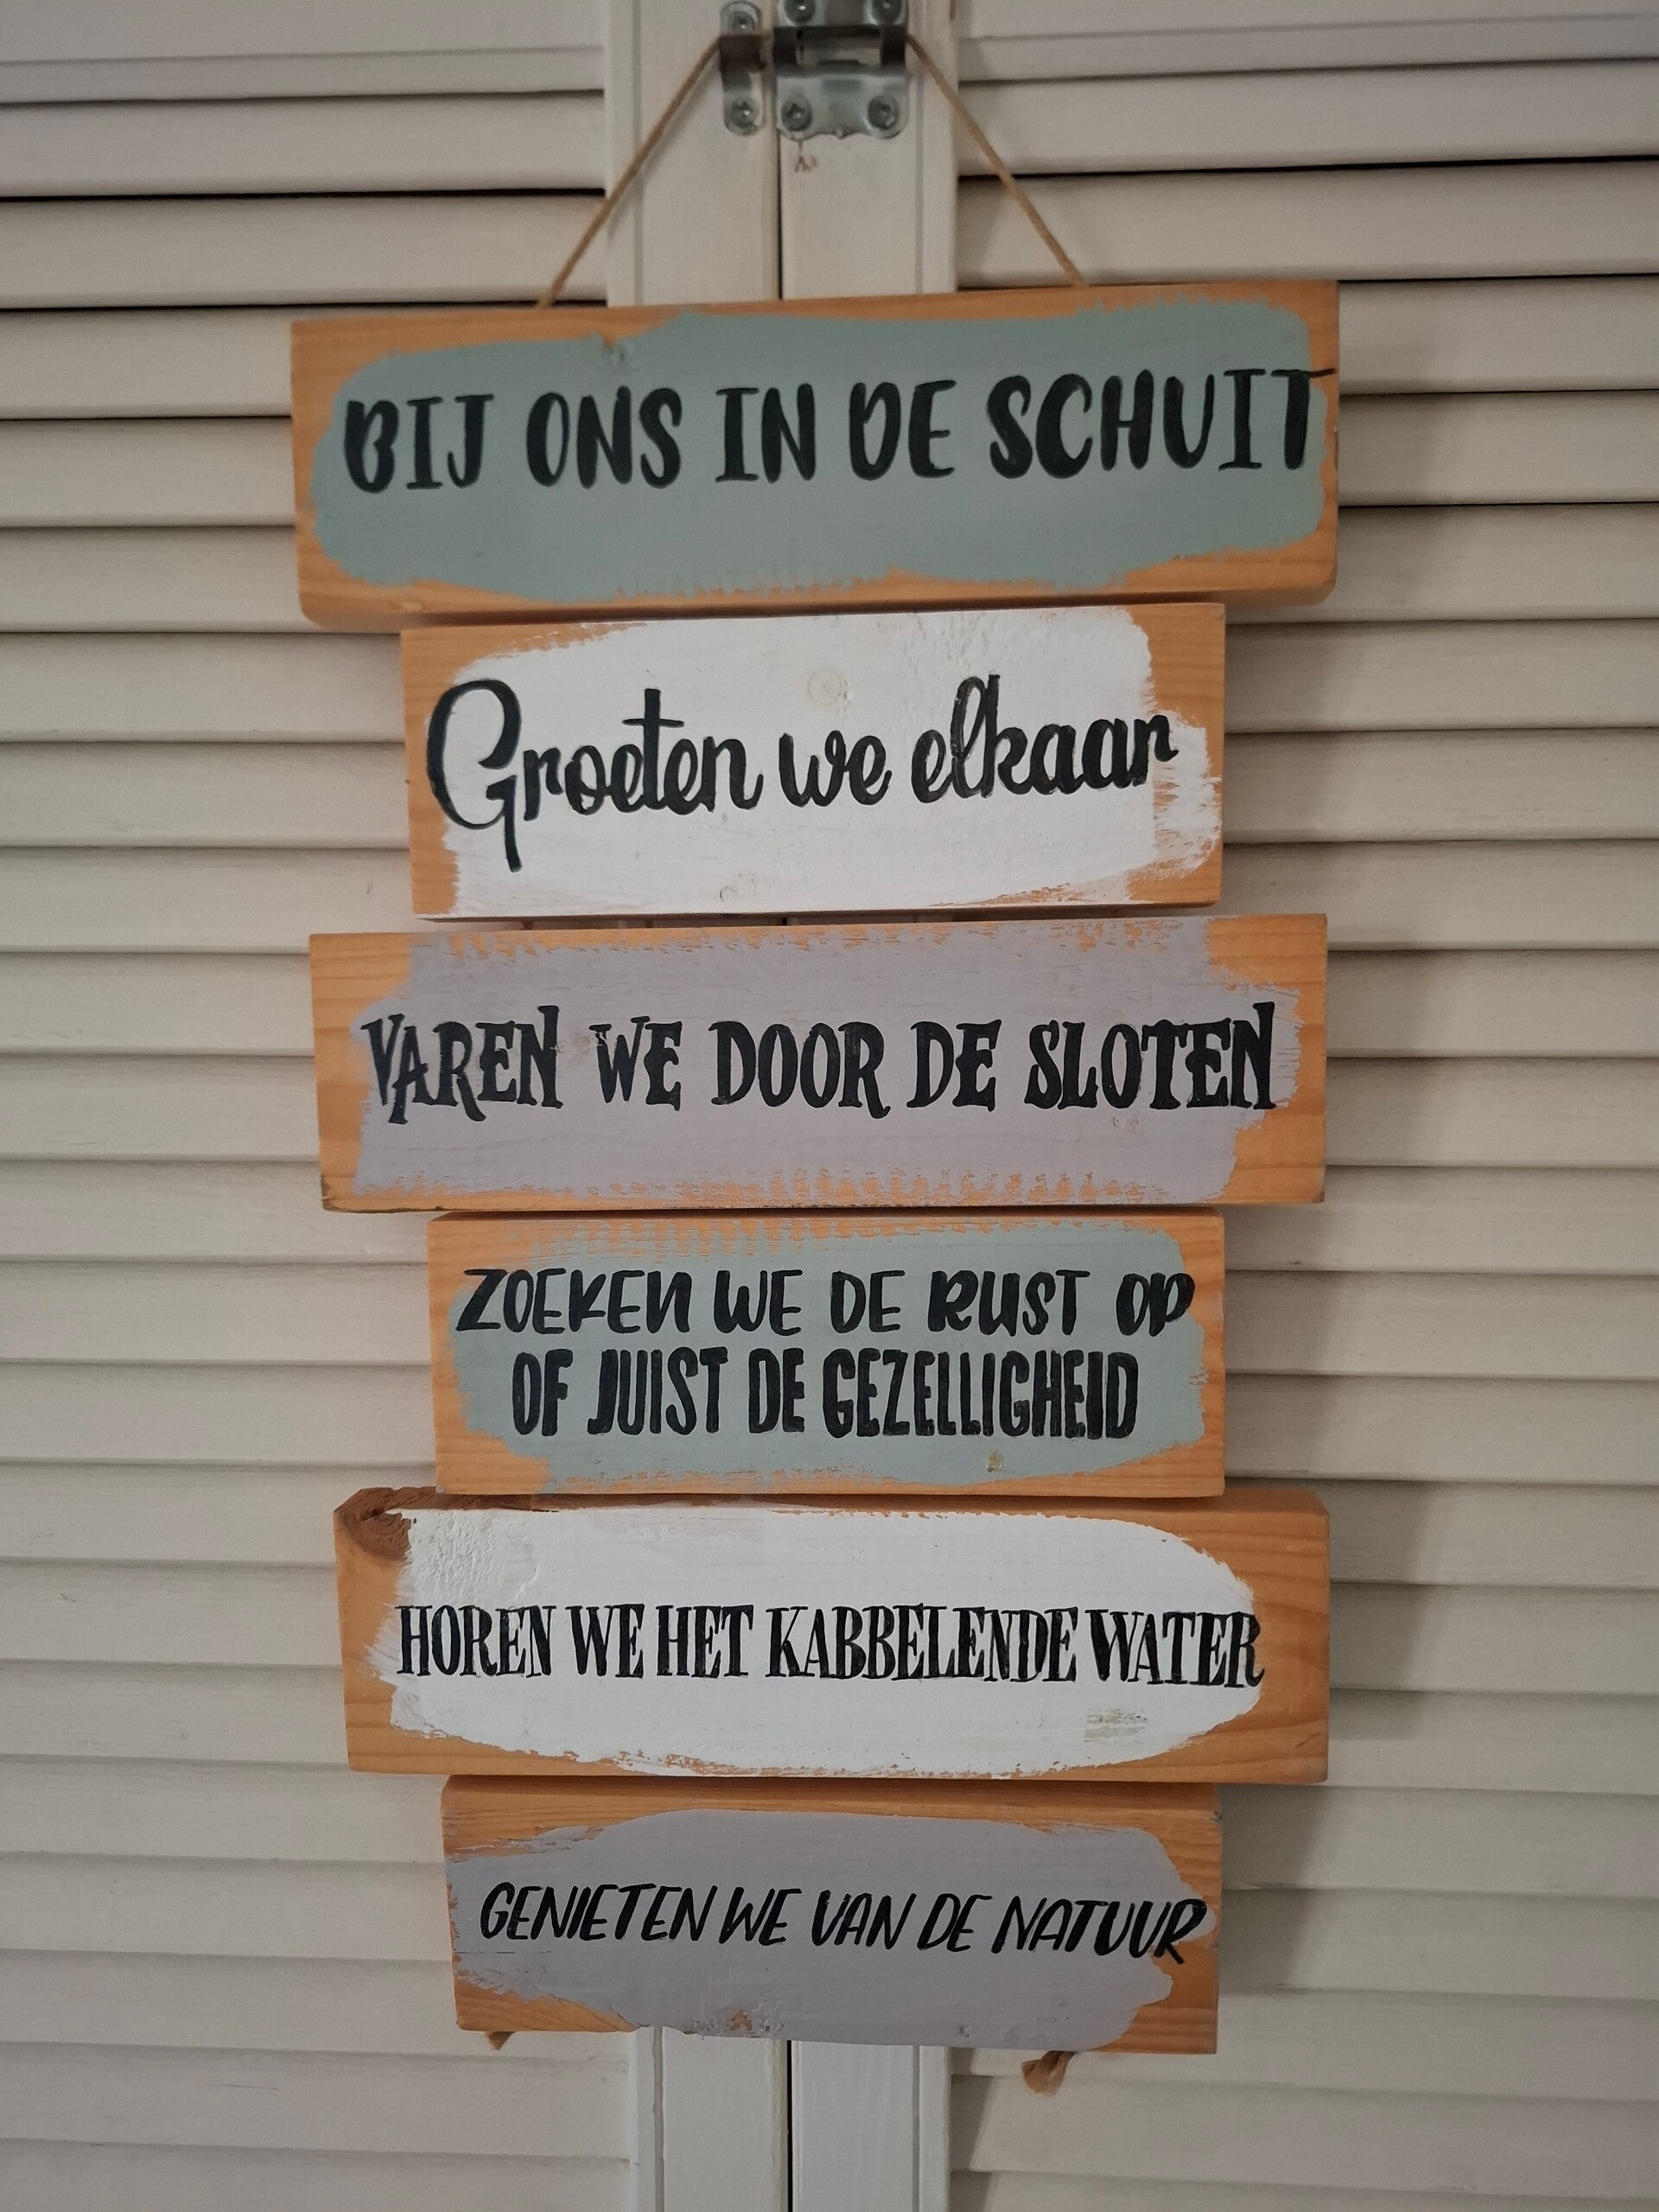 BIJ ONS IN DE SCHUIT
Groeten we elkaar
VAREN WE DOOR DE SLOTEN
ZOEKEN WE DE RUST OP
OF JUIST DE GEZELLIGHEID
HOREN WE HET KABBELENDE WATER
GENIETEN WE VAN DE NATUUR